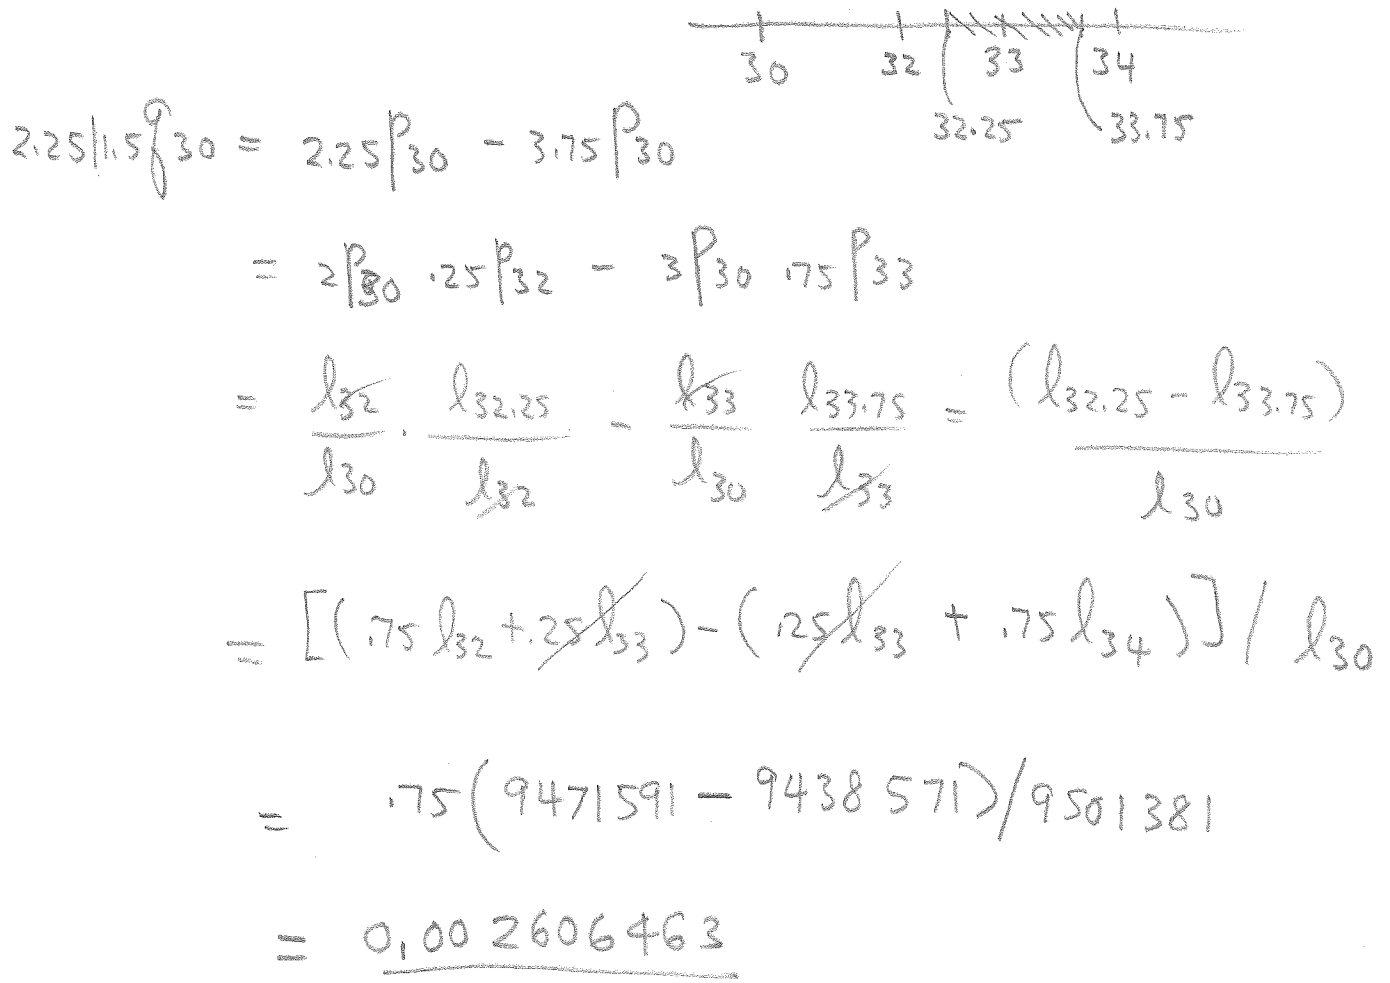 30 32 33 34
32.25 33.75
2.25|1.5q30 = 2.25p30 - 3.75p30
= 2p30 .25p32 - 3p30 .75p33
= l32/l30 · l32.25/l32 - l33/l30 l33.75/l33 = (l32.25 - l33.75)/l30
= [(.75 l32 + .25 l33) - (.25 l33 + .75 l34)] / l30
= .75(9471591 - 9438571)/9501381
= 0.002606463